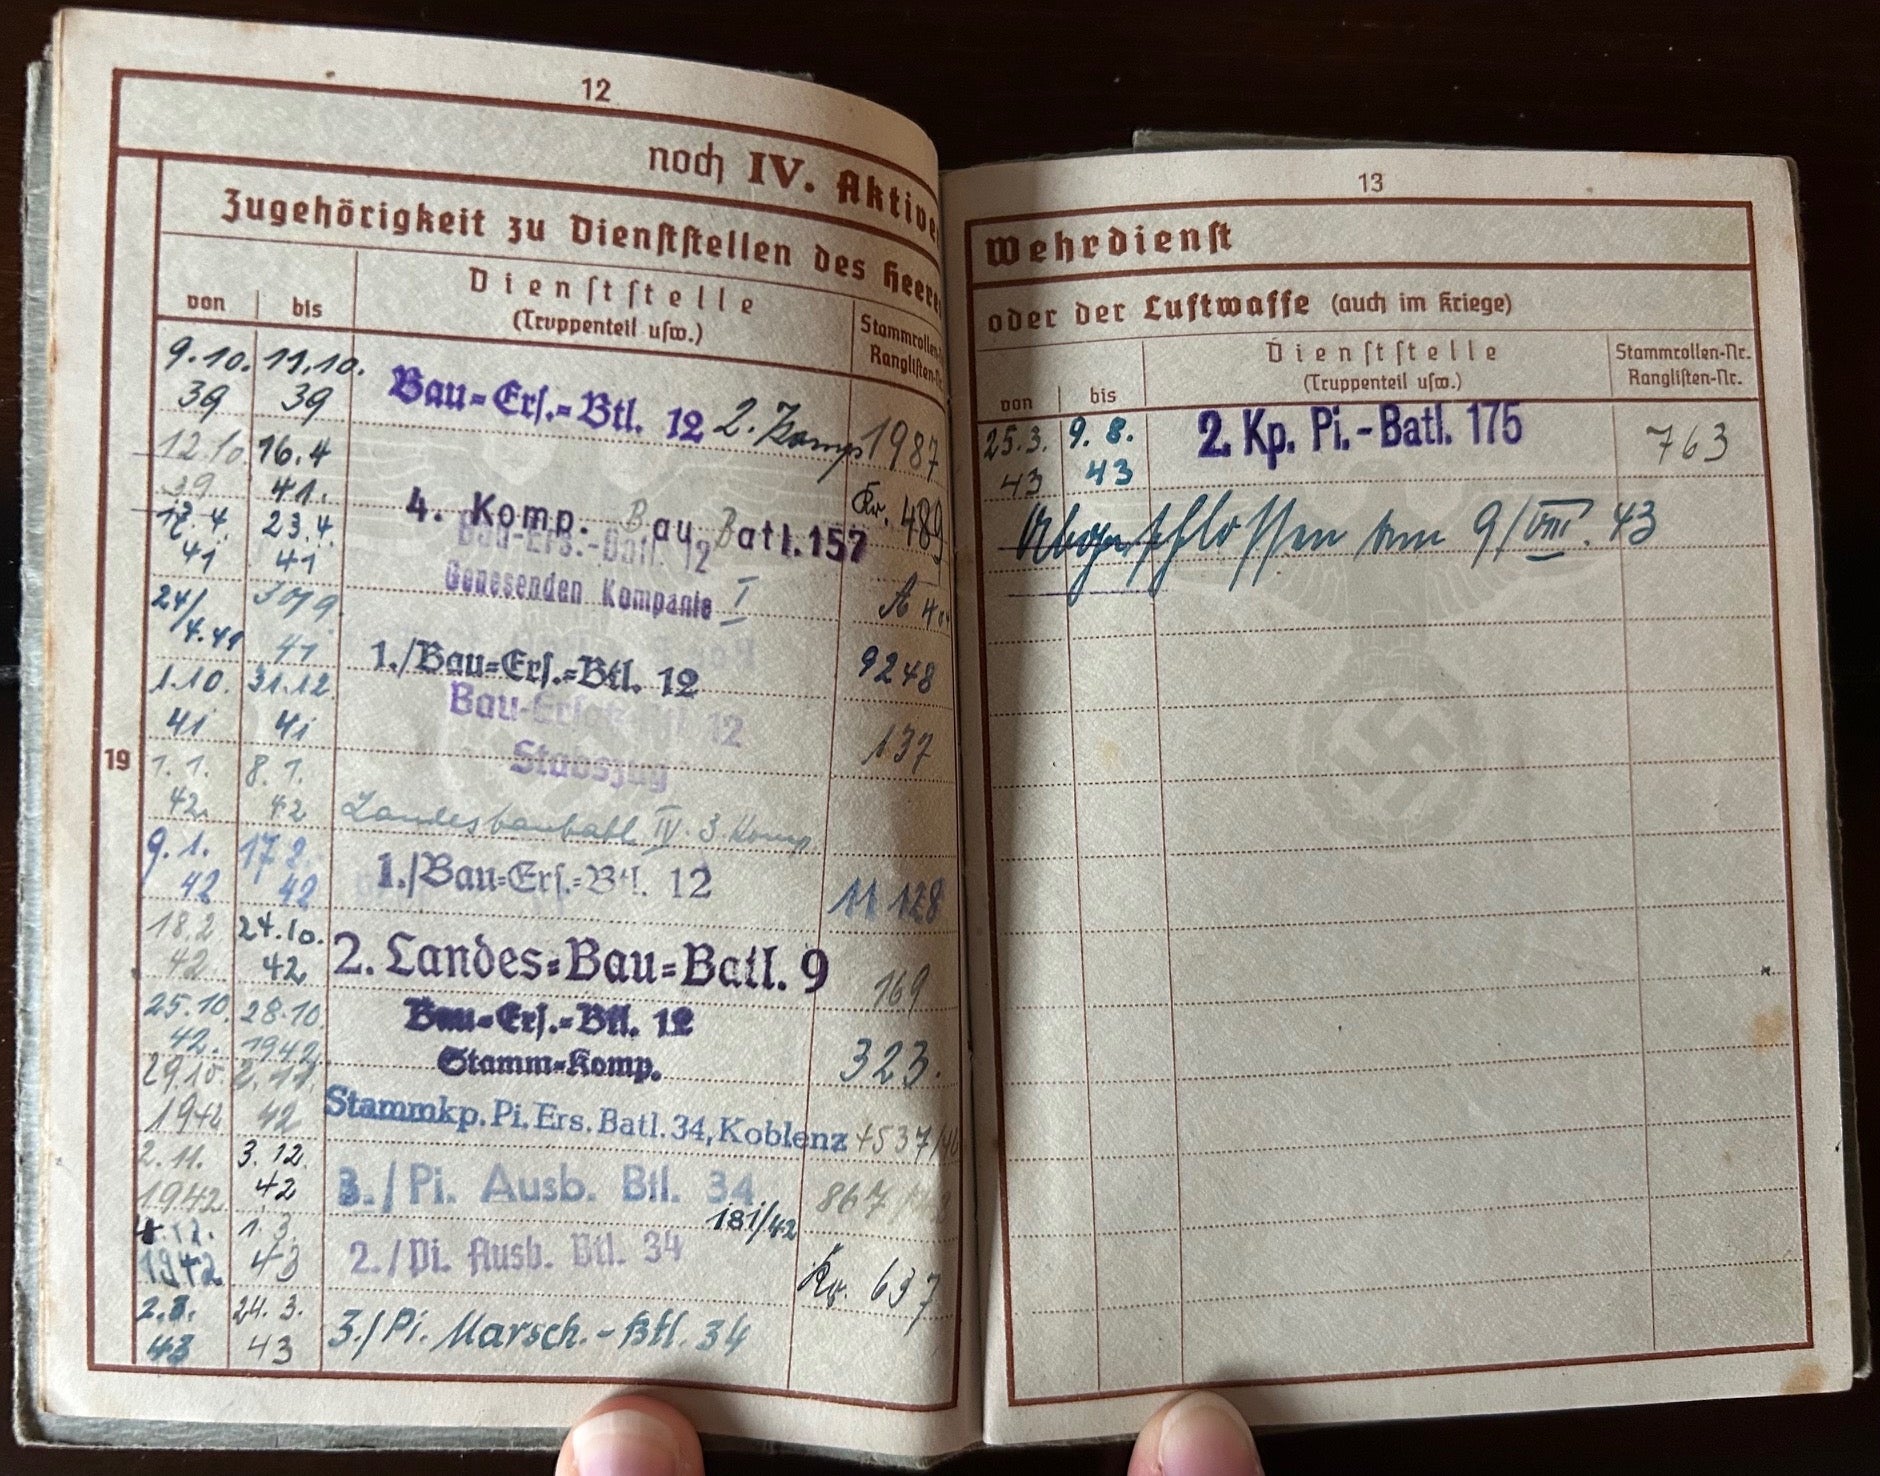 12
noch IV. Aktive
Zugehörigkeit zu Dienststellen des Heere
von bis Dienststelle
(Truppenteil usw.)
Stammrollen-
Ranglisten-Nr.
9.10. 11.10.
39 39
Bau=Ers.=Btl. 12 2. Komp 1987
12.10. 16.4
39 41.
4. Komp. Bau Batl. 157 Kr. 489
17.4 23.4.
41 41
Bau-Ers.-Batl. 12
Genesenden Kompanie I
24/ 30/9.
4.41 41
1./Bau=Ers.=Btl. 12 9248
1.10. 31.12.
41 41
Bau-Ersatz-Btl. 12
Stabszug 137
19
1.1. 8.1.
42. 42
Landesbaubatl. IV. 3. Komp.
9.1. 17.2.
42 42
1./Bau=Ers.=Btl. 12 11 128
18.2. 24.10.
42. 42
2. Landes=Bau=Batl. 9 169
25.10. 28.10.
42. 1942
Bau=Ers.=Btl. 12
Stamm=Komp. 323.
29.10. 2.11.
1942 42
Stammkp. Pi. Ers. Batl. 34, Koblenz
2.11. 3.12.
1942 42
3./Pi. Ausb. Btl. 34
181/42
4.12. 1.3.
1942 43
2./Pi. Ausb. Btl. 34 Kr. 637
2.3. 24.3.
43 43
3./Pi. Marsch.-Btl. 34
13
Wehrdienst
oder der Luftwaffe (auch im Kriege)
von bis Dienststelle
(Truppenteil usw.)
Stammrollen-Nr.
Ranglisten-Nr.
25.3. 9.8.
43 43
2. Kp. Pi.-Batl. 175 763
Abgeschlossen am 9/VIII. 43